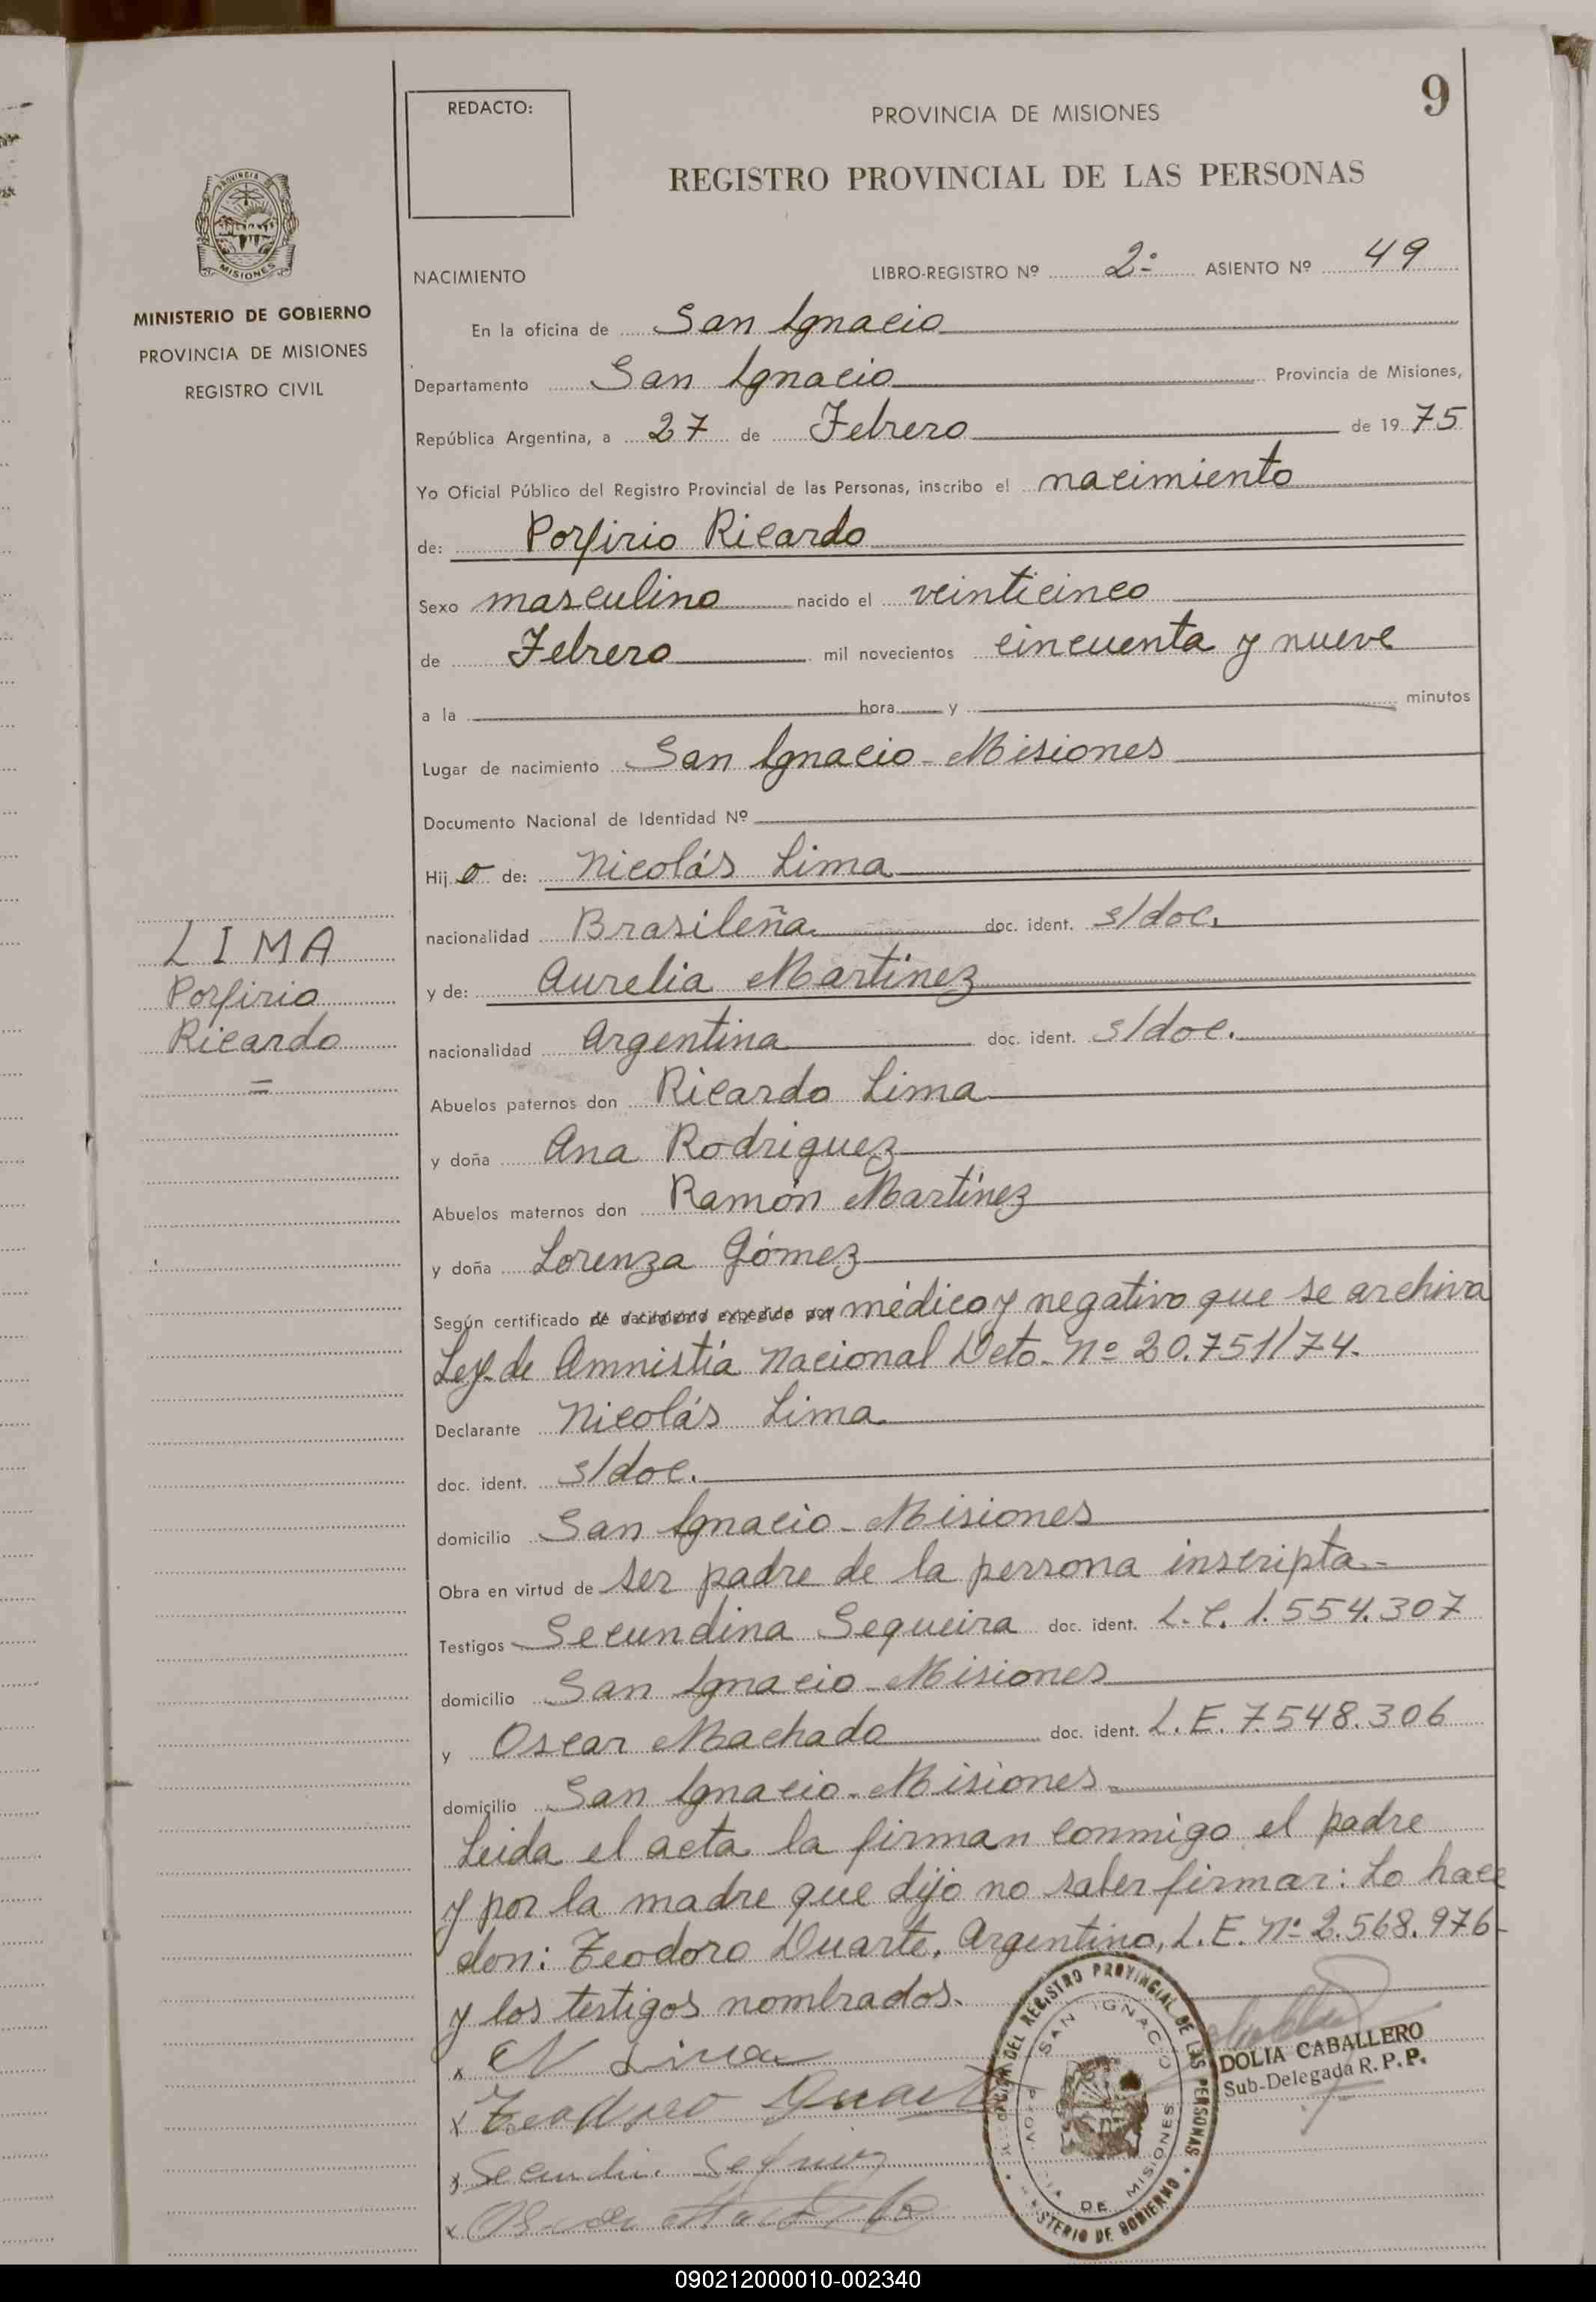 9
REDACTO:
PROVINCIA DE MISIONES
REGISTRO PROVINCIAL DE LAS PERSONAS
PROVINCIA DE
MISIONES
MINISTERIO DE GOBIERNO
PROVINCIA DE MISIONES
REGISTRO CIVIL
NACIMIENTO LIBRO-REGISTRO Nº 2º ASIENTO Nº 49
En la oficina de San Ignacio
Departamento San Ignacio Provincia de Misiones,
República Argentina, a 27 de Febrero de 1975
Yo Oficial Público del Registro Provincial de las Personas, inscribo el nacimiento
de: Porfirio Ricardo
Sexo masculino nacido el veinticinco
de Febrero mil novecientos cincuenta y nueve
a la hora y minutos
Lugar de nacimiento San Ignacio - Misiones
Documento Nacional de Identidad Nº
Hijo de: Nicolás Lima
nacionalidad Brasileña doc. ident. s/doc.
y de: Aurelia Martinez
nacionalidad Argentina doc. ident. s/doc.
LIMA
Porfirio
Ricardo
=
Abuelos paternos don Ricardo Lima
y doña Ana Rodriguez
Abuelos maternos don Ramón Martínez
y doña Lorenza Gómez
Según certificado de nacimiento expedido por médico y negativo que se archiva
Ley de Amnistía Nacional Dcto. Nº 20.751/74.
Declarante Nicolás Lima
doc. ident. s/doc.
domicilio San Ignacio - Misiones
Obra en virtud de ser padre de la persona inscripta.-
Testigos Secundina Sequeira doc. ident. L.C. 1.554.307
domicilio San Ignacio - Misiones
y Oscar Machado doc. ident. L.E. 7.548.306
domicilio San Ignacio - Misiones
Leida el acta la firman conmigo el padre
y por la madre que dijo no saber firmar: Lo hace
don: Teodoro Duarte, Argentino, L.E. Nº 2.568.976-
y los testigos nombrados.
x N Lima
x Teodoro Duarte
DEL REGISTRO PROVINCIAL DE LAS PERSONAS
MINISTERIO DE GOBIERNO
SAN IGNACIO
DE MISIONES
DOLIA CABALLERO
Sub-Delegada R. P. P.
090212000010-002340